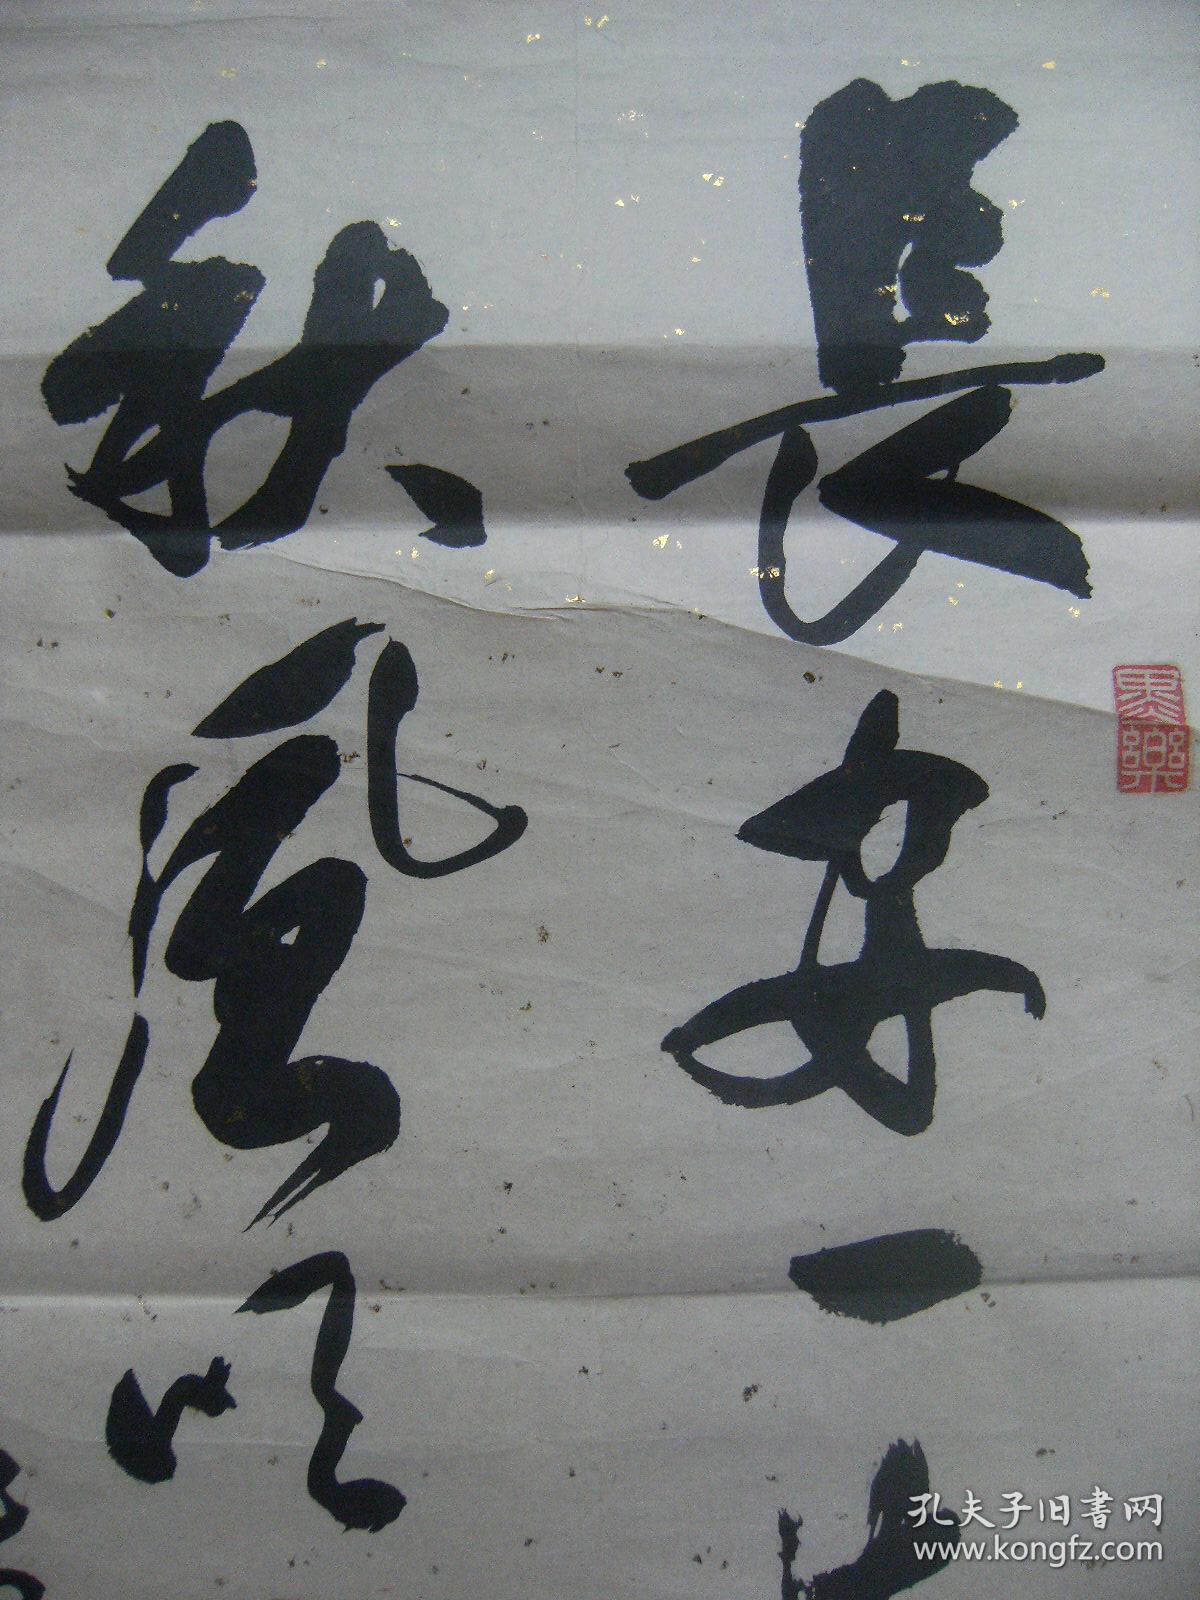 長安一
樂
秋風吹
孔夫子旧書网
www.kongfz.com